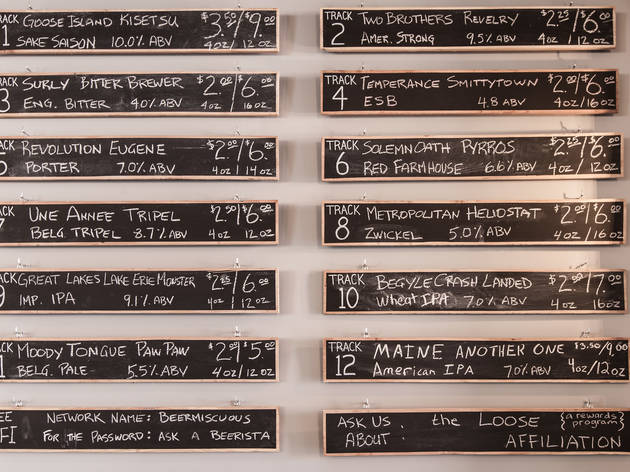 ACK GOOSE ISLAND KISETSU $3.50/$9.00
1 SAKE SAISON 10.0% ABV 4oz/12oz
TRACK TWO BROTHERS REVELRY $2.25/$6.00
2 AMER. STRONG 9.5% ABV 4oz/12oz
ACK SURLY BITTER BREWER $2.00/$6.00
3 ENG. BITTER 4.0% ABV 4oz/16oz
TRACK TEMPERANCE SMITTYTOWN $2.00/$6.00
4 ESB 4.8 ABV 4oz/16oz
REVOLUTION EUGENE $2.00/$6.00
PORTER 7.0% ABV 4oz/14oz
TRACK SOLEMN OATH PYRROS $2.25/$6.00
6 RED FARMHOUSE 6.6% ABV 4oz/16oz
ACK UNE ANNEE TRIPEL $2.50/$6.00
7 BELG. TRIPEL 8.7% ABV 4oz/12oz
TRACK METROPOLITAN HELIOSTAT $2.00/$6.00
8 ZWICKEL 5.0% ABV 4oz/16oz
ACK GREAT LAKES LAKE ERIE MONSTER $2.25/$6.00
9 IMP. IPA 9.1% ABV 4oz/12oz
TRACK BEGYLE CRASH LANDED $2.00/$7.00
10 Wheat IPA 7.0% ABV 4oz 16oz
ACK MOODY TONGUE PAW PAW $2.00/$5.00
1 BELG. PALE 5.5% ABV 4oz/12oz
TRACK MAINE ANOTHER ONE $3.50/9.00
12 American IPA 7.0% ABV 4oz/12oz
EE NETWORK NAME: BEERMISCUOUS
FI FOR THE PASSWORD: ASK A BEERISTA
ASK US the LOOSE {a rewards program}
ABOUT: AFFILIATION